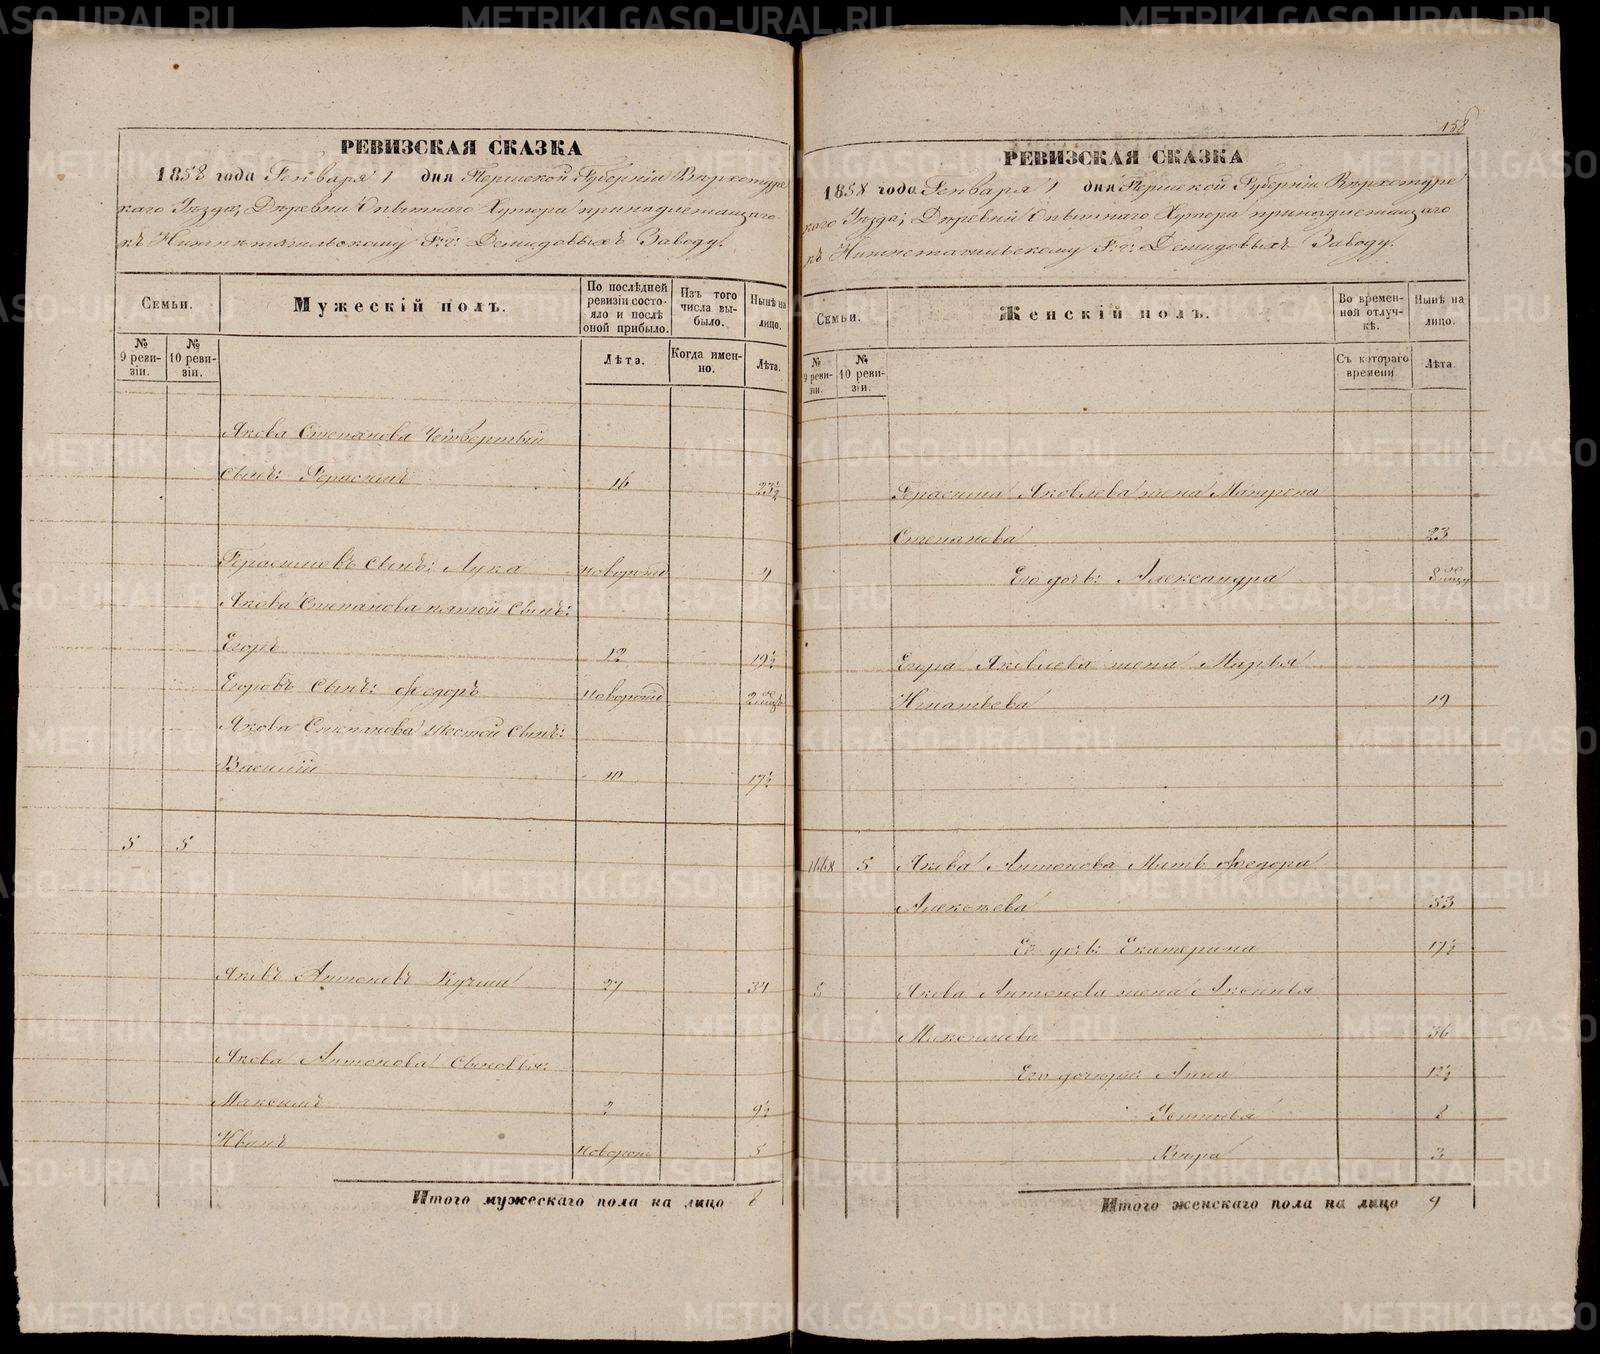 РЕВИЗСКАЯ СКАЗКА
1858 года Генваря 1 дня Пермской Губернiи Верхотурс
каго Уезда; Деревни Опытнаго Хутора принадлежащаго
къ Нижнетагильскому Г: г: Демидовыхъ Заводу.
Семьи.
Мужескiй полъ.
По последней ревизiи состояло и после оной прибыло.
Изъ того числа выбыло.
Ныне на лицо.
№ 9 ревизiи.
№ 10 ревизiи.
Лета.
Когда именно.
Лета.
Якова Степанова Четвертый
сынъ: Герасимъ 16 23½
Герасимовъ сынъ: Лука новорож 4
Якова Степанова пятой сынъ:
Егоръ 12 19½
Егоровъ сынъ: Федоръ новорож 2
Якова Степанова шестой сынъ:
Василiй 10 17½
5 5
Яковъ Антоновъ 27 34
Якова Антонова сыновья:
Максимъ 2 9½
Иванъ новорож 5
Итого мужескаго пола на лицо 8
158
РЕВИЗСКАЯ СКАЗКА
1858 года Генваря 1 дня Пермской Губернiи Верхотурс
каго Уезда; Деревни Опытнаго Хутора принадлежащаго
къ Нижнетагильскому Г: г: Демидовыхъ Заводу.
Семьи.
Женскiй полъ.
Во временной отлучке.
Ныне на лицо.
№ 9 ревизiи.
№ 10 ревизiи.
Съ котораго времени
Лета.
Герасима Яковлева жена Матрена
Степанова 23
Его дочь: Александра 8
Егора Яковлева жена Марья
Игнатьева 19
5 Якова Антонова Мать Федора
Алексеева 53
Ея дочь: Екатерина 17½
5 Якова Антонова жена Аксинья
36
Его дочери: Анна 12½
Устинья 8
Кира 3
Итого женскаго пола на лицо 9
METRIKI.GASO-URAL.RU